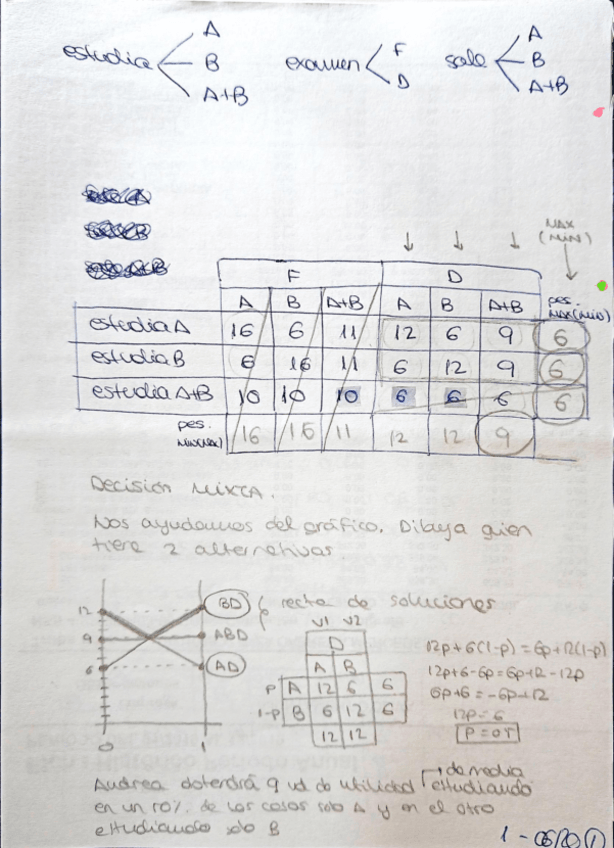 A
estudia B
A+B
F
examen
D
A
sale B
A+B
MAX
(MIN)
F D
A B A+B A B A+B pes. MAX(MIN)
estudia A 16 6 11 12 6 9 6
estudia B 6 16 11 6 12 9 6
estudia A+B 10 10 10 6 6 6 6
pes. MIN(MAX) 16 16 11 12 12 9
Decisión MIXTA.
Nos ayudamos del gráfico. Dibuja quien
tiene 2 alternativas
12 BD
9 ABD
6 AD
0 1
recta de soluciones
V1 V2
D
A B
P A 12 6 6
1-P B 6 12 6
12 12
12p+6(1-p) = 6p+12(1-p)
12p+6-6p=6p+12-12p
6p+6=-6p+12
12p=6
P=0'5
Andrea obtendrá 9 ud de utilidad de media estudiando
en un 50% de los casos solo A y en el otro
estudiando solo B